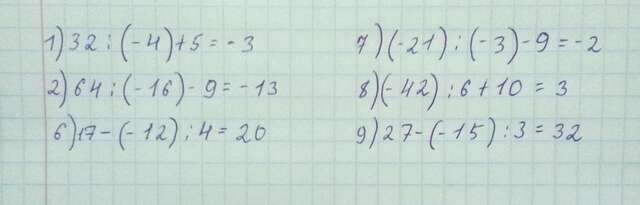 1) 32 : (-4) + 5 = -3
2) 64 : (-16) - 9 = -13
6) 17 - (-12) : 4 = 20
7) (-21) : (-3) - 9 = -2
8) (-42) : 6 + 10 = 3
9) 27 - (-15) : 3 = 32